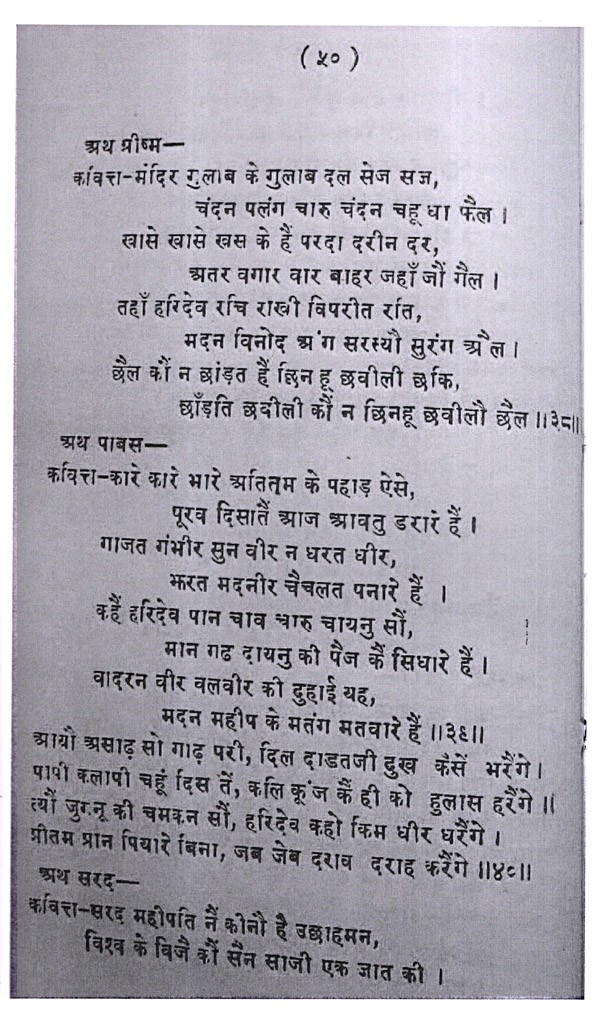 ( ५० )
अथ ग्रीष्म—
कवित्त-मंदिर गुलाब के गुलाब दल सेज सज,
चंदन पलंग चारु चंदन चहू धा फैल ।
खासे खासे खस के हैं परदा दरीन दर,
अतर वगार वार बाहर जहाँ जौं गैल ।
तहाँ हरिदेव रचि राखी विपरीत रति,
मदन विनोद अंग सरस्यौ सुरंग अैल ।
छैल कौं न छांड़त हैं छिन हू छवीली छकि,
छाँड़ति छवीली कौं न छिनहू छवीलौ छैल ।।३८।।
अथ पाबस—
कवित्त-कारे कारे भारे अतितम के पहाड़ ऐसे,
पूरव दिसातैं आज आवतु डरारे हैं ।
गाजत गंभीर सुन वीर न धरत धीर,
झरत मदनीर चैचलत पनारे हैं ।
कहैं हरिदेव पान चाव चारु चायनु सौं,
मान गढ दायनु की पैज कैं सिधारे हैं ।
वादरन वीर वलवीर की दुहाई यह,
मदन महीप के मतंग मतवारे हैं ।।३६।।
आयौ असाढ़ सो गाढ़ परी, दिल दाडतजी दुख कैसें भरैंगे ।
पापी कलापी चहूं दिस तें, कलि कूंज कैं ही को हुलास हरैंगे ।।
त्यौं जुगनू की चमकन सौं, हरिदेव कहो किम धीर धरैंगे ।
प्रीतम प्रान पियारे बिना, जब जेब दराव दराह करैंगे ।।४८।।
अथ सरद—
कवित्त-सरद महीपति नैं कीनौ है उछाहमन,
विश्व के विजै कौं सैन साजी एक जात की ।